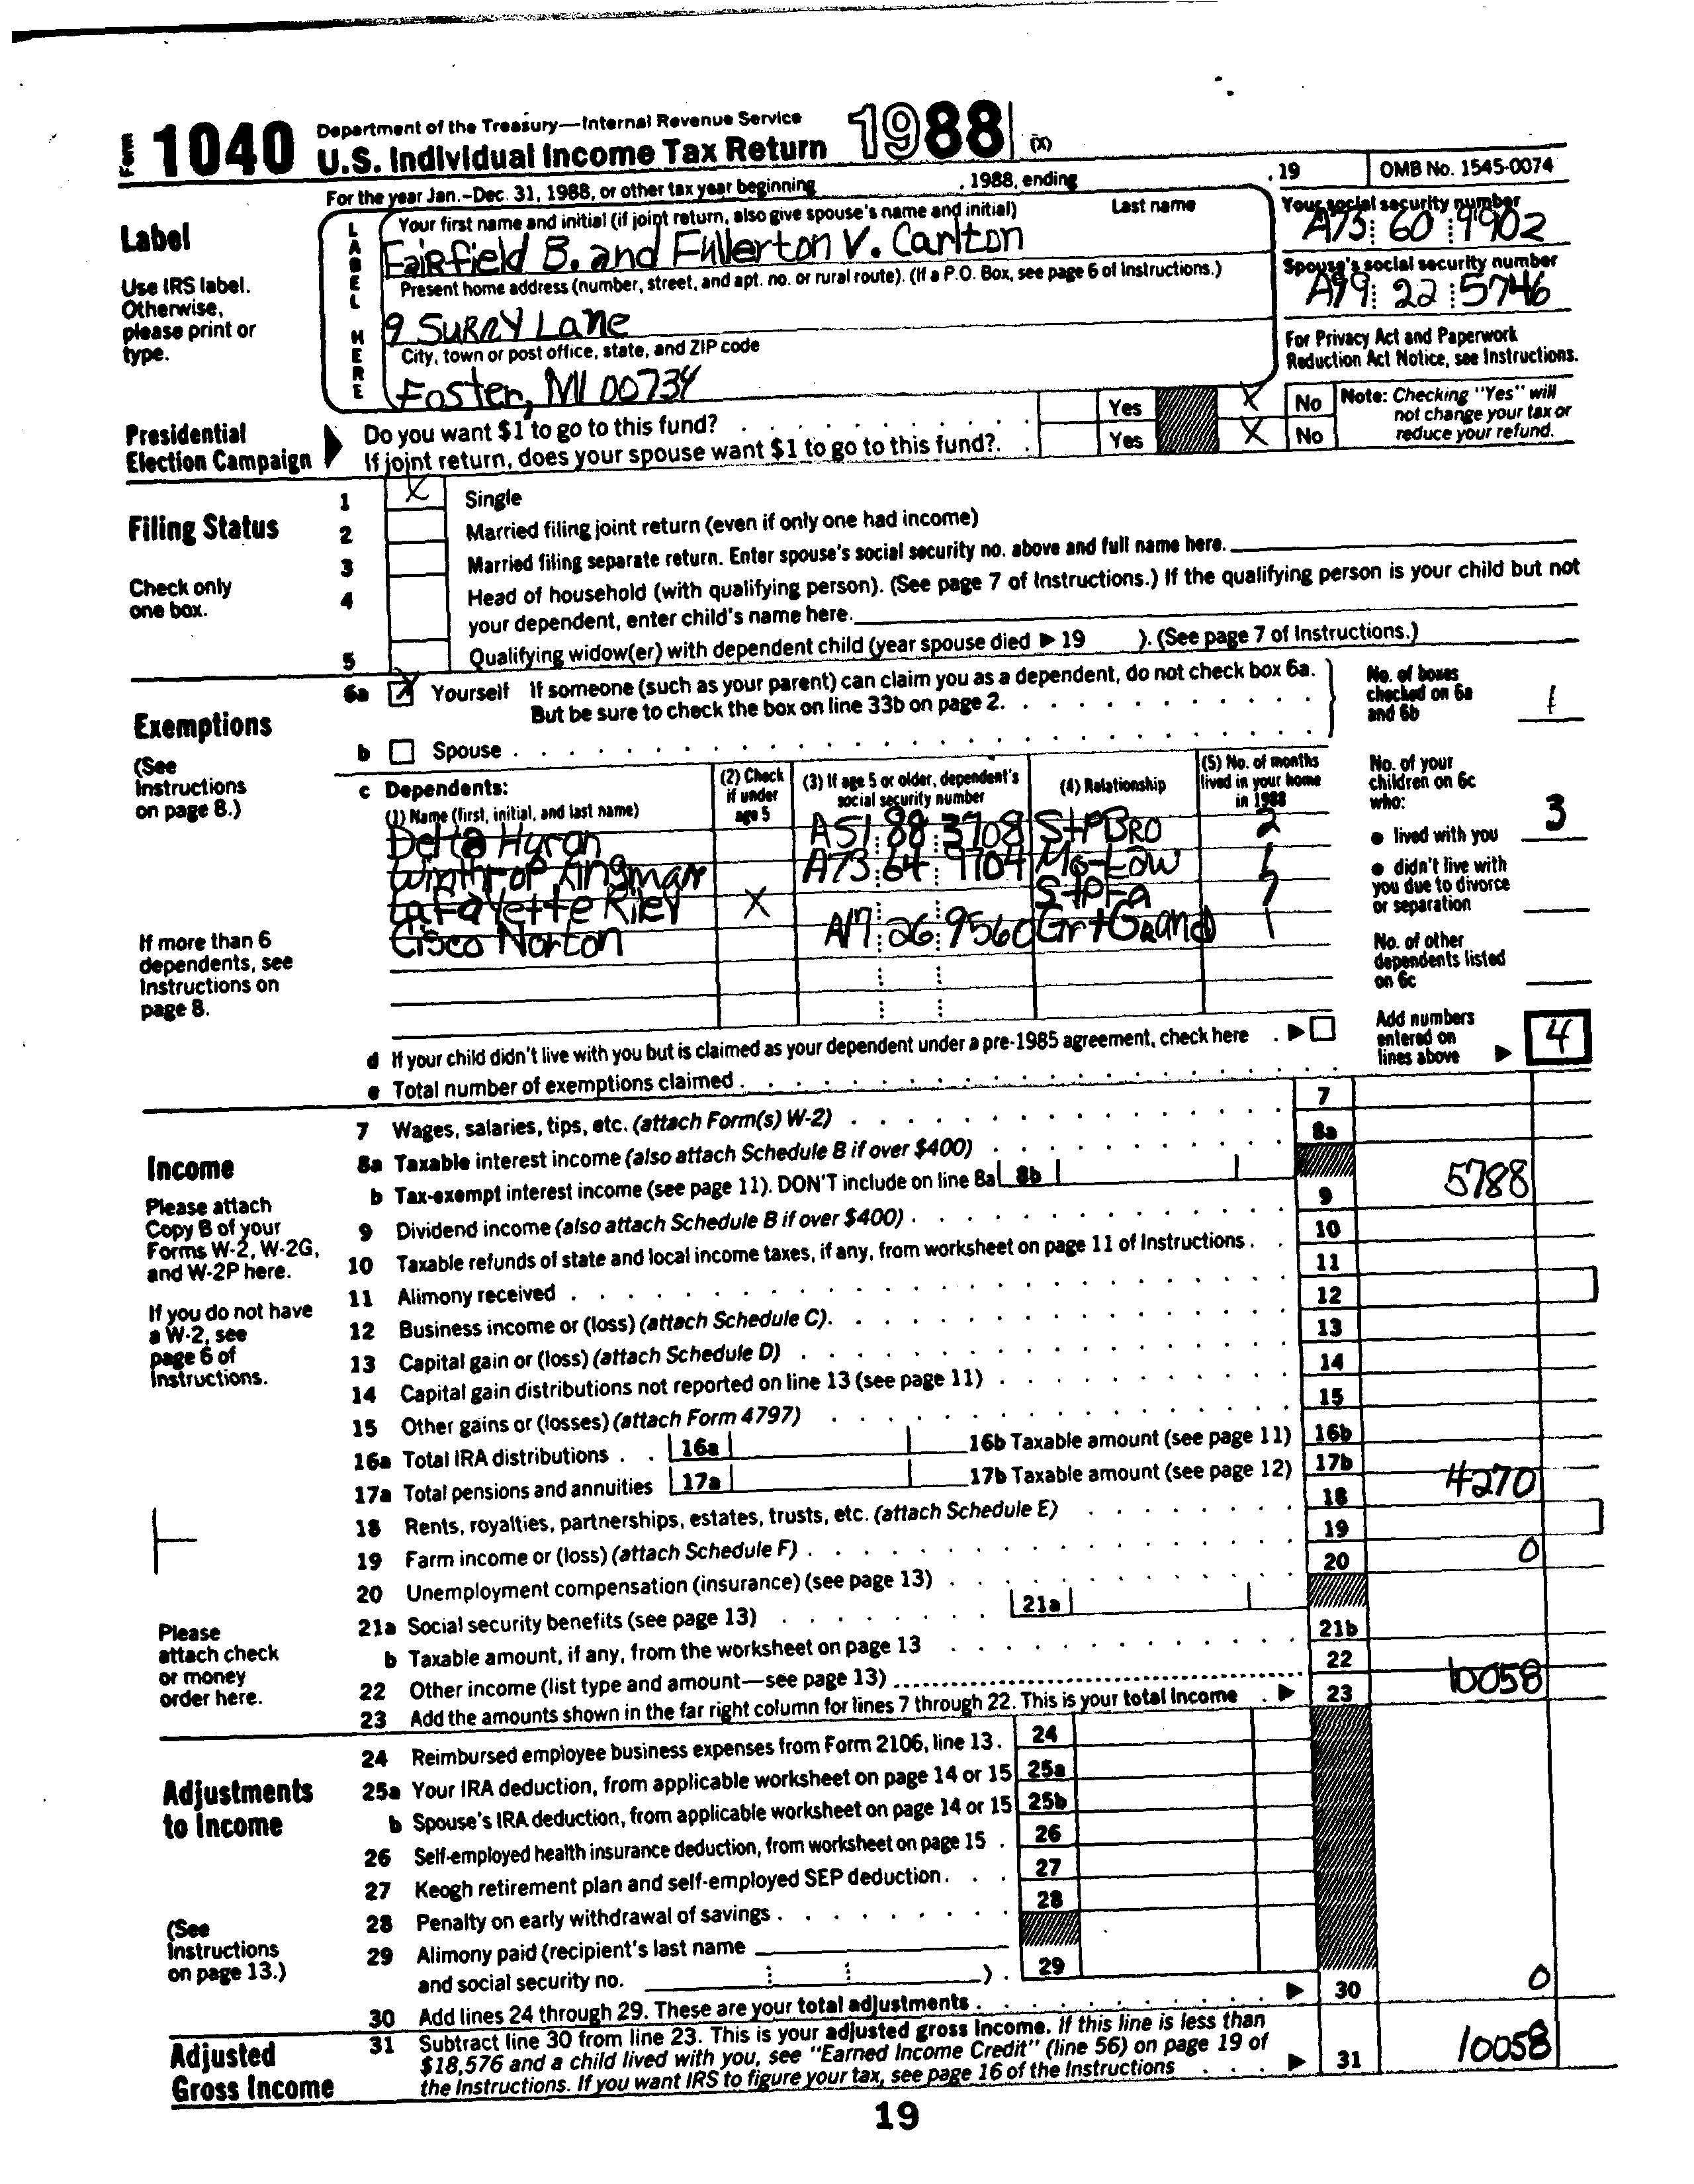 Form 1040 Department of the Treasury—Internal Revenue Service
U.S. Individual Income Tax Return 1988 (X)
For the year Jan.-Dec. 31, 1988, or other tax year beginning , 1988, ending , 19 OMB No. 1545-0074
Label
Use IRS label.
Otherwise,
please print or
type.
LABEL HERE
Your first name and initial (if joint return, also give spouse's name and initial) Last name
Fairfield B. and Fullerton V. Carlton
Your social security number
A73 60 9902
Present home address (number, street, and apt. no. or rural route). (If a P.O. Box, see page 6 of Instructions.)
9 SURRY Lane
Spouse's social security number
A99 22 5746
City, town or post office, state, and ZIP code
Foster, MI 00734
For Privacy Act and Paperwork
Reduction Act Notice, see Instructions.
Presidential
Election Campaign
Do you want $1 to go to this fund? Yes X No
If joint return, does your spouse want $1 to go to this fund? Yes X No
Note: Checking "Yes" will
not change your tax or
reduce your refund.
Filing Status
Check only
one box.
1 X Single
2 Married filing joint return (even if only one had income)
3 Married filing separate return. Enter spouse's social security no. above and full name here.
4 Head of household (with qualifying person). (See page 7 of Instructions.) If the qualifying person is your child but not
your dependent, enter child's name here.
5 Qualifying widow(er) with dependent child (year spouse died ▶ 19 ). (See page 7 of Instructions.)
Exemptions
(See
Instructions
on page 8.)
6a X Yourself If someone (such as your parent) can claim you as a dependent, do not check box 6a.
But be sure to check the box on line 33b on page 2.
b Spouse
No. of boxes
checked on 6a
and 6b 1
c Dependents:
(1) Name (first, initial, and last name)
(2) Check
if under
age 5
(3) If age 5 or older, dependent's
social security number
(4) Relationship
(5) No. of months
lived in your home
in 1988
Delta Huron A51 88 3708 StPBRO 2
Winthrop Kingman A73 64 9704 Mo-Law
LaFayette Riley X StPFa
Cisco Norton A17 26 9560 GrtGrand 1
No. of your
children on 6c
who:
● lived with you 3
● didn't live with
you due to divorce
or separation
No. of other
dependents listed
on 6c
If more than 6
dependents, see
Instructions on
page 8.
d If your child didn't live with you but is claimed as your dependent under a pre-1985 agreement, check here ▶
e Total number of exemptions claimed
Add numbers
entered on
lines above ▶ 4
Income
Please attach
Copy B of your
Forms W-2, W-2G,
and W-2P here.
If you do not have
a W-2, see
page 6 of
Instructions.
Please
attach check
or money
order here.
7 Wages, salaries, tips, etc. (attach Form(s) W-2) 7
8a Taxable interest income (also attach Schedule B if over $400) 8a
b Tax-exempt interest income (see page 11). DON'T include on line 8a 8b
9 Dividend income (also attach Schedule B if over $400) 9 5788
10 Taxable refunds of state and local income taxes, if any, from worksheet on page 11 of Instructions 10
11 Alimony received 11
12 Business income or (loss) (attach Schedule C) 12
13 Capital gain or (loss) (attach Schedule D) 13
14 Capital gain distributions not reported on line 13 (see page 11) 14
15 Other gains or (losses) (attach Form 4797) 15
16a Total IRA distributions 16a 16b Taxable amount (see page 11) 16b
17a Total pensions and annuities 17a 17b Taxable amount (see page 12) 17b
18 Rents, royalties, partnerships, estates, trusts, etc. (attach Schedule E) 18 4270
19 Farm income or (loss) (attach Schedule F) 19
20 Unemployment compensation (insurance) (see page 13) 20 0
21a Social security benefits (see page 13) 21a
b Taxable amount, if any, from the worksheet on page 13 21b
22 Other income (list type and amount—see page 13) 22
23 Add the amounts shown in the far right column for lines 7 through 22. This is your total income ▶ 23 10058
Adjustments
to Income
(See
Instructions
on page 13.)
24 Reimbursed employee business expenses from Form 2106, line 13 24
25a Your IRA deduction, from applicable worksheet on page 14 or 15 25a
b Spouse's IRA deduction, from applicable worksheet on page 14 or 15 25b
26 Self-employed health insurance deduction, from worksheet on page 15 26
27 Keogh retirement plan and self-employed SEP deduction 27
28 Penalty on early withdrawal of savings 28
29 Alimony paid (recipient's last name
and social security no. ) 29
30 Add lines 24 through 29. These are your total adjustments ▶ 30 0
Adjusted
Gross Income
31 Subtract line 30 from line 23. This is your adjusted gross income. If this line is less than
$18,576 and a child lived with you, see "Earned Income Credit" (line 56) on page 19 of
the Instructions. If you want IRS to figure your tax, see page 16 of the Instructions ▶ 31 10058
19